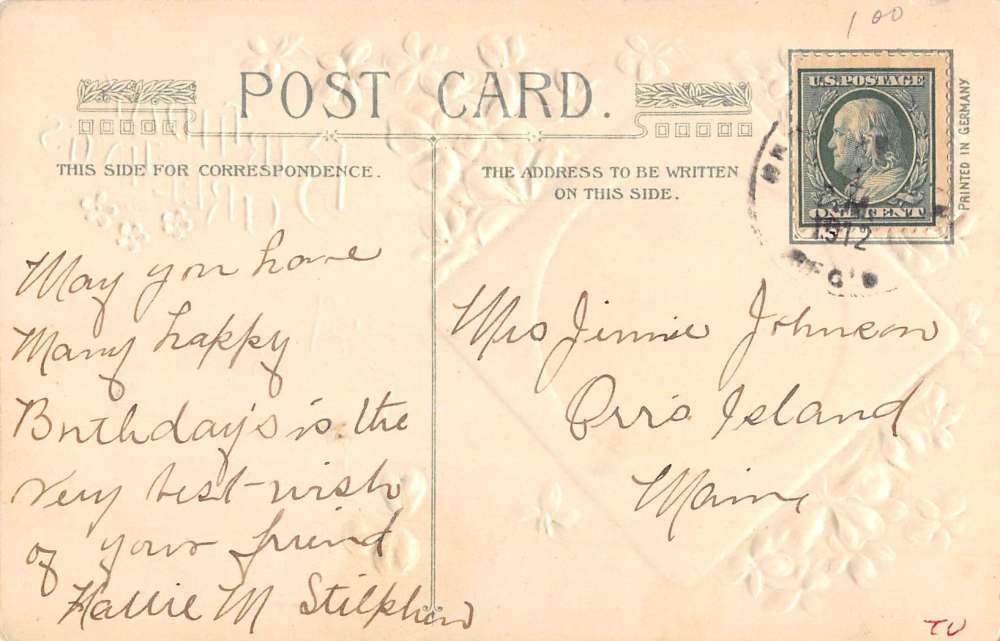 1 00
POST CARD.
THIS SIDE FOR CORRESPONDENCE.
THE ADDRESS TO BE WRITTEN
ON THIS SIDE.
U.S. POSTAGE
ONE CENT
1912
REC'D
PRINTED IN GERMANY
May you have
Many happy
Birthday's is the
very best-wish
of your friend
Hattie M Stilphen
Mrs Jinnie Johnson
Orr's Island
Maine
TU